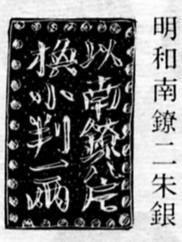 明和南鐐二朱銀
以南鐐八片
換小判一兩